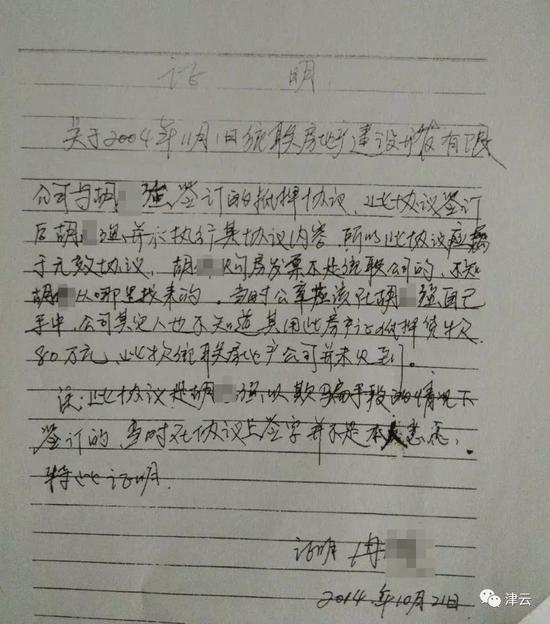 证 明
关于2004年11月1日统联房地产建设开发有限
公司与胡 强签订的抵押协议,此协议签订
后胡 强并示执行其协议内容,所以此协议应属
于无效协议。胡 门房发票不是统联公司的,不知
胡 从哪里找来的。当时公章应该在胡 强自己
手中,公司其它人也不知道其用此房产证抵押贷款
80万元,此款统联房地产公司并未见到。
注:此协议是胡 强以欺骗手段的情况下
签订的,当时在协议上签字并不是本人意愿.
特此证明.
证明 周
2014年10月21日
津云